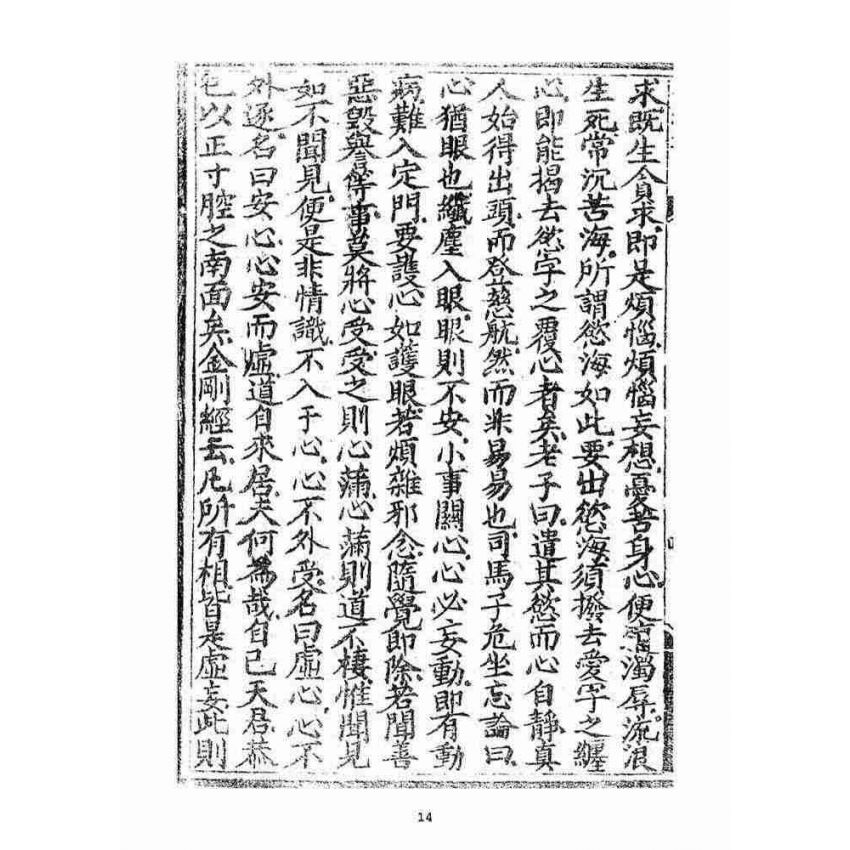 求既生貪求即是煩惱煩惱妄想憂苦身心便濁辱流浪
生死常沉苦海所謂慾海如此要出慾海須撥去愛字之纏
心即能揭去慾字之覆心者矣老子曰遣其慾而心自靜真
人始得出頭而登慈航然而非易易也司馬子危坐忘論曰
心猶眼也纖塵入眼眼則不安小事關心心必妄動即有動
病難入定門要護心如護眼若煩雜邪念隨覺即除若聞善
惡毀與譽等事莫將心受受之則心蒲心蒲則道不棲惟聞見
如不聞見便是非情識不入于心心不外受名曰虛心心不
外逐名曰安心心安而虛道自來居夫何為哉自己天君恭
己以正寸腔之南面矣金剛經云凡所有相皆是虛妄此則
14